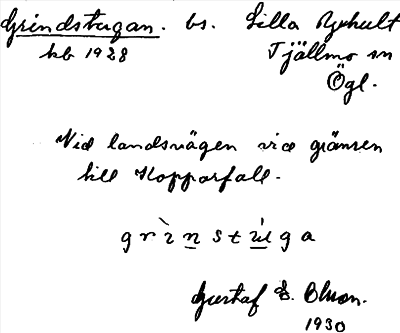 Grindstugan. bs. Lilla Byhult
hb 1928 Tjällmo sn
Ögl.
Vid landsvägen vid gränsen
till Kopparfall.
grìnstúga
Gustaf E. Olson.
1930